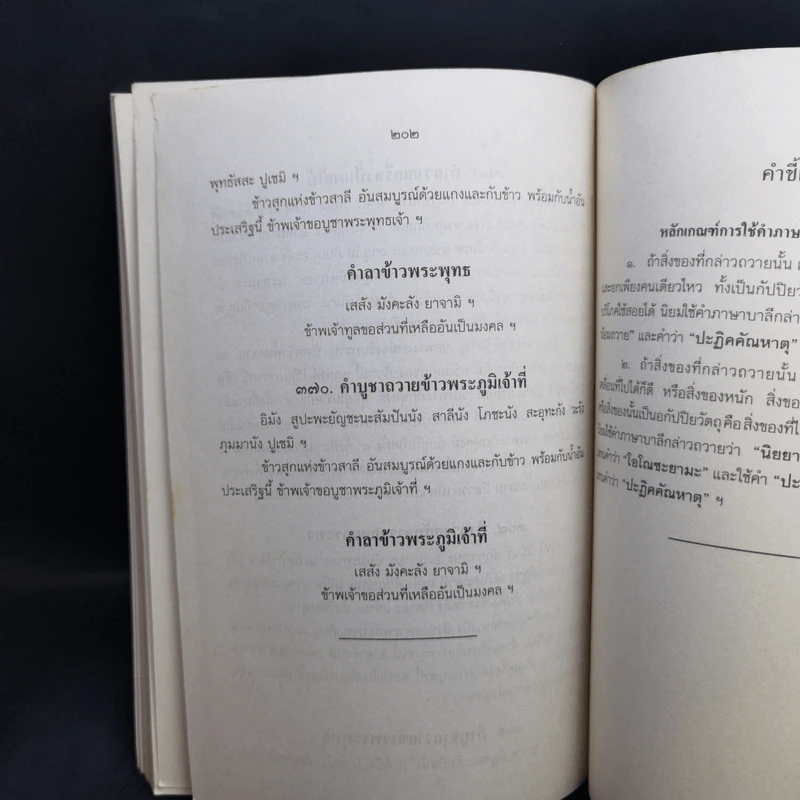 ๒๐๒
พุทธัสสะ ปูเชมิ ฯ
ข้าวสุกแห่งข้าวสาลี อันสมบูรณ์ด้วยแกงและกับข้าว พร้อมกับน้ำอัน
ประเสริฐนี้ ข้าพเจ้าขอบูชาพระพุทธเจ้า ฯ
คำลาข้าวพระพุทธ
เสสัง มังคะลัง ยาจามิ ฯ
ข้าพเจ้าทูลขอส่วนที่เหลืออันเป็นมงคล ฯ
๓๗๐. คำบูชาถวายข้าวพระภูมิเจ้าที่
อิมัง สูปะพะยัญชะนะสัมปันนัง สาลีนัง โภชะนัง สะอุทะกัง วะรัง
ภุมมานัง ปูเชมิ ฯ
ข้าวสุกแห่งข้าวสาลี อันสมบูรณ์ด้วยแกงและกับข้าว พร้อมกับน้ำอัน
ประเสริฐนี้ ข้าพเจ้าขอบูชาพระภูมิเจ้าที่ ฯ
คำลาข้าวพระภูมิเจ้าที่
เสสัง มังคะลัง ยาจามิ ฯ
ข้าพเจ้าขอส่วนที่เหลืออันเป็นมงคล ฯ
คำชี้
หลักเกณฑ์การใช้คำภาษา
๑. ถ้าสิ่งของที่กล่าวถวายนั้น
และยกเพียงคนเดียวไหว ทั้งเป็นกัปปิย
บริโภคใช้สอยได้ นิยมใช้คำภาษาบาลีกล่า
น้อมถวาย” และคำว่า “ปะฏิคคัณหาตุ”
๒. ถ้าสิ่งของที่กล่าวถวายนั้น
เคลื่อนที่ไปได้ก็ดี หรือสิ่งของหนัก สิ่งขอ
หรือสิ่งของนั้นเป็นอกัปปิยวัตถุคือสิ่งของที่ไ
นิยมใช้คำภาษาบาลีกล่าวถวายว่า “นิยยา
แทนคำว่า “โอโณชะยามะ และใช้คำ “ปะ
แทนคำว่า “ปะฏิคคัณหาตุ” ฯ